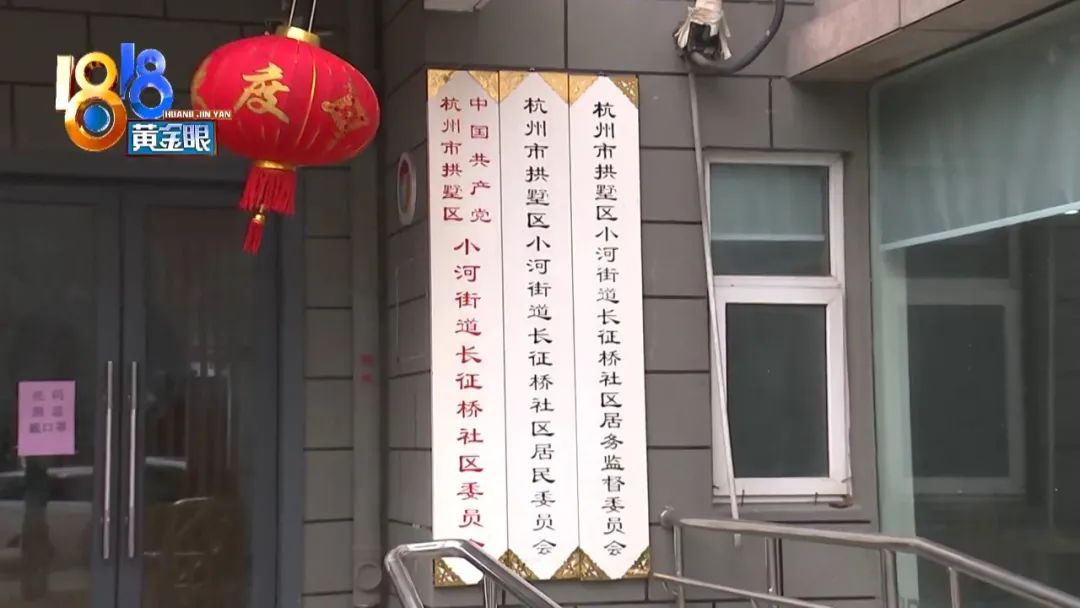 1818
HUANG JIN YAN
黄金眼
度
中国共产党
杭州市拱墅区
小河街道长征桥社区委员会
杭州市拱墅区小河街道长征桥社区居民委员会
杭州市拱墅区小河街道长征桥社区居务监督委员会
亮码
测温
戴口罩